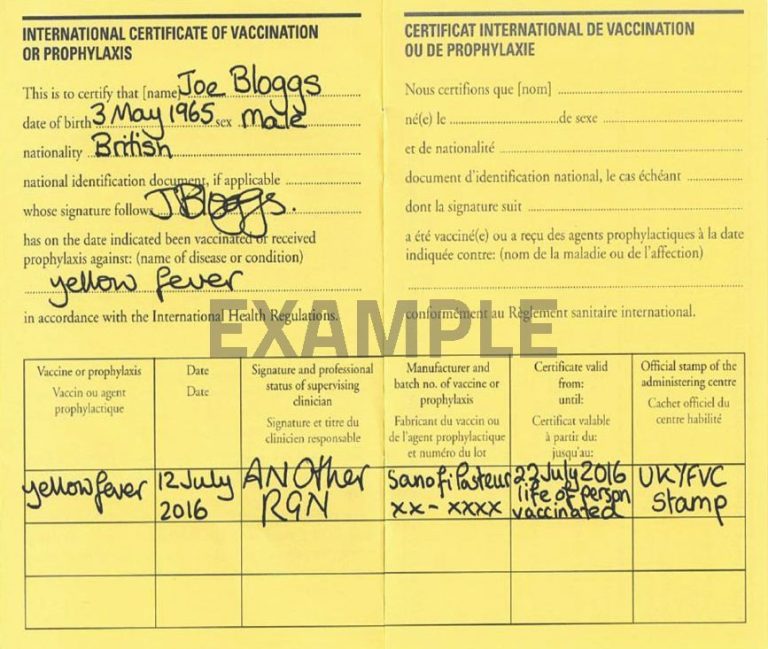 INTERNATIONAL CERTIFICATE OF VACCINATION
OR PROPHYLAXIS
This is to certify that [name] Joe Bloggs
date of birth 3 May 1965 sex male
nationality British
national identification document, if applicable
whose signature follows JBloggs.
has on the date indicated been vaccinated or received
prophylaxis against: (name of disease or condition)
yellow fever
in accordance with the International Health Regulations.
CERTIFICAT INTERNATIONAL DE VACCINATION
OU DE PROPHYLAXIE
Nous certifions que [nom]
né(e) le de sexe
et de nationalité
document d'identification national, le cas échéant
dont la signature suit
a été vacciné(e) ou a reçu des agents prophylactiques à la date
indiquée contre: (nom de la maladie ou de l'affection)
conformément au Règlement sanitaire international.
EXAMPLE
Vaccine or prophylaxis
Vaccin ou agent
prophylactique
Date
Date
Signature and professional
status of supervising
clinician
Signature et titre du
clinicien responsable
Manufacturer and
batch no. of vaccine or
prophylaxis
Fabricant du vaccin ou
de l'agent prophylactique
et numéro du lot
Certificate valid
from:
until:
Certificat valable
à partir du:
jusqu'au:
Official stamp of the
administering centre
Cachet officiel du
centre habilité
yellow fever
12 July
2016
ANOther
RGN
Sanofi Pasteur
xx - xxxx
22 July 2016
life of person
vaccinated
UKYFVC
Stamp